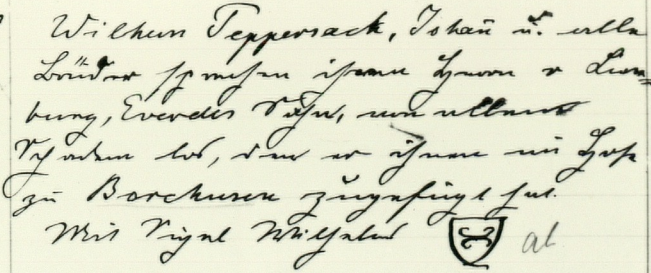 Wilhem Peppersack, Johañ u. alle
Brüder sprechen ihren Herrn v Lim=
burg, Everdes Sohn, von allem
Schaden los, den er ihnen im Hofe
zu Borchusen zugefügt hat.
Mit Sigel Wilhelms ab